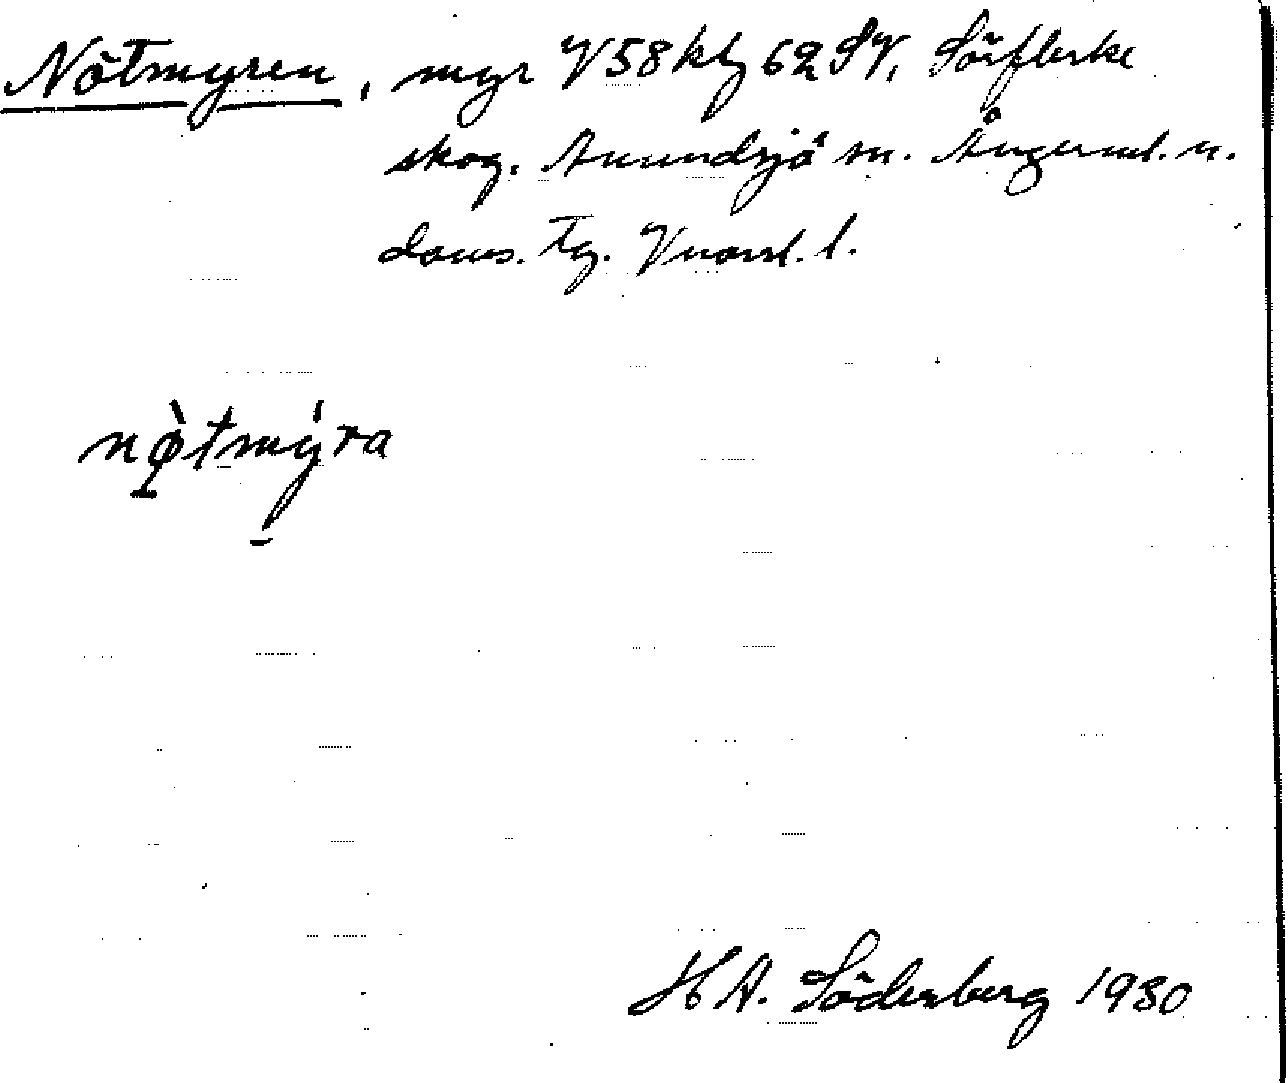 Nötmyren, myr V58 kbl 62 SV, Sörflärke
skog. Anundsjö sn. Ångerml. n.
doms. tg. Vnorrl. l.
nø̀tmýra
H A. Söderberg 1930